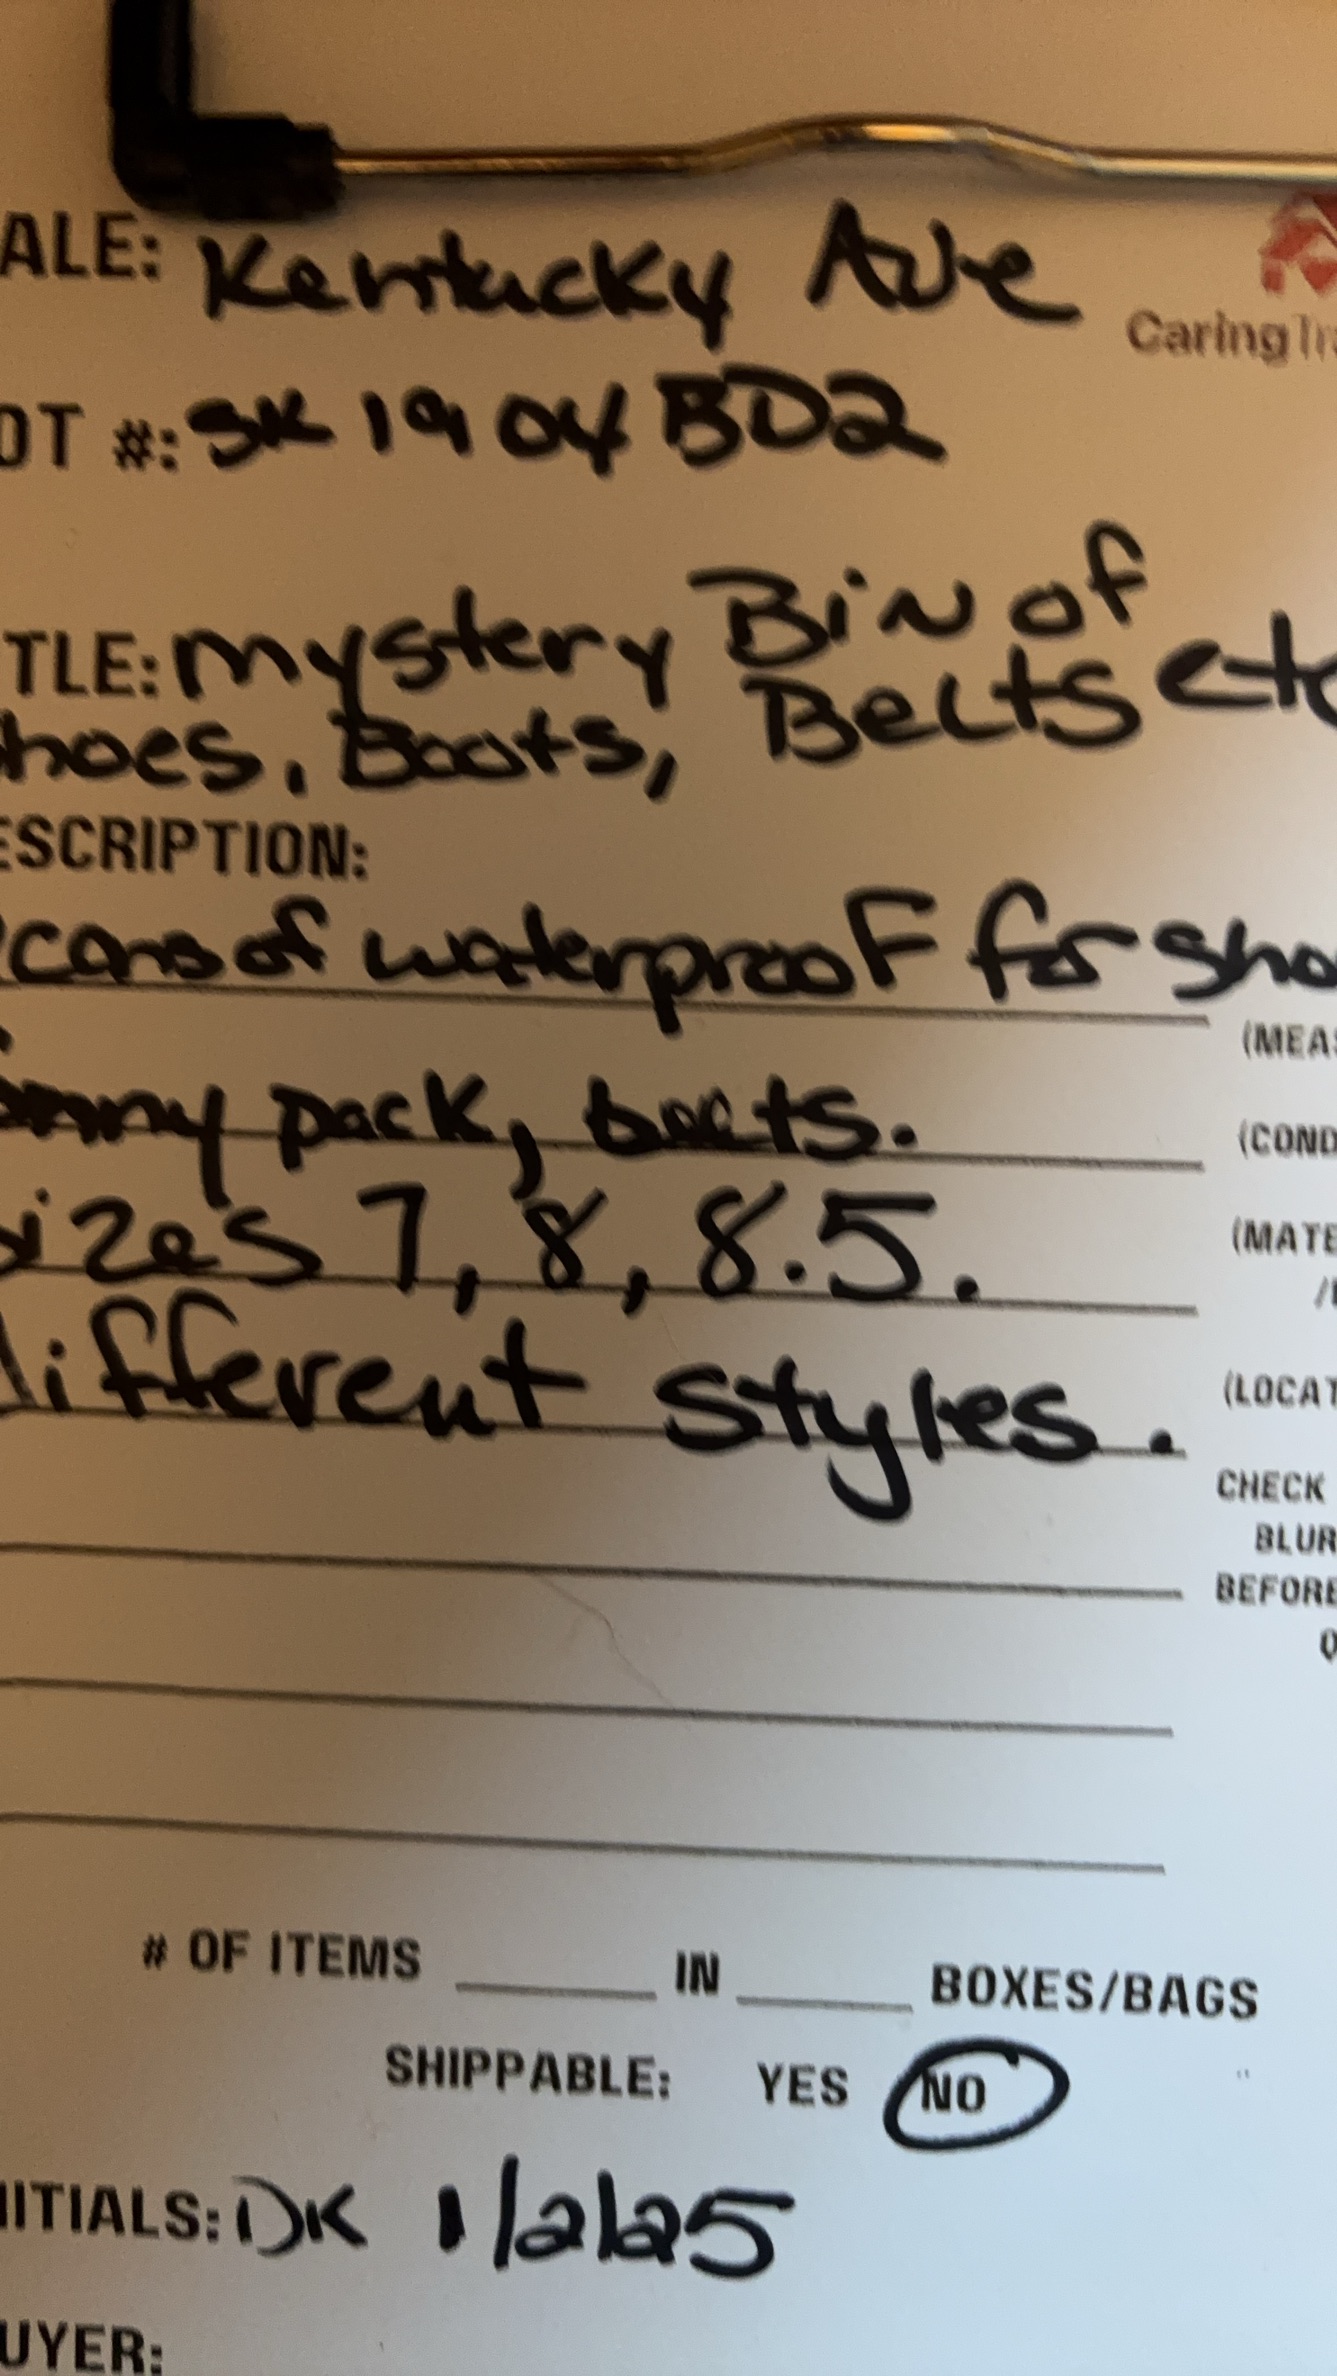 ALE: Kentucky Ave
Caring Tra
OT #: SK1904BD2
TLE: mystery Bin of
hoes, Boots, Belts etc
ESCRIPTION:
cans of waterproof for sho
(MEAS
nny pack, boots.
(COND
sizes 7, 8, 8.5.
(MATE
different styles.
(LOCAT
CHECK
BLUR
BEFORE
# OF ITEMS ______ IN ______ BOXES/BAGS
SHIPPABLE: YES NO
NITIALS: DK 1/2/25
UYER: